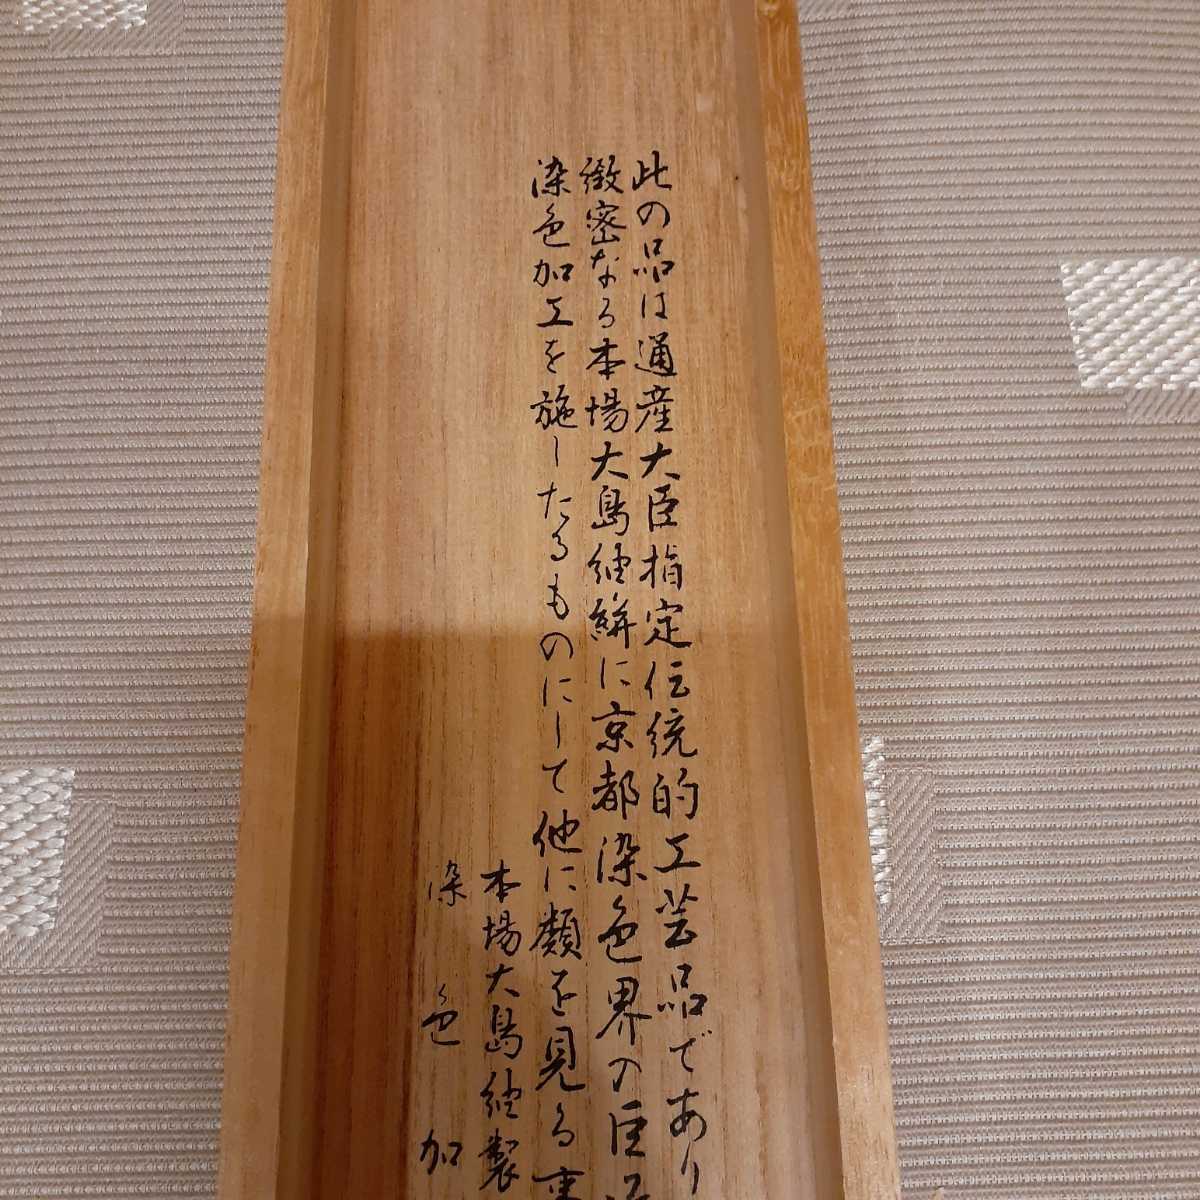 此の品は通産大臣指定伝統的工芸品であり
緻密なる本場大島紬絣に京都染色界の巨
染色加工を施したるものにして他に類を見る事
本場大島紬製
染色加